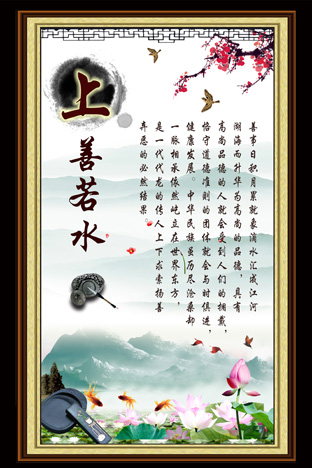 上善若水
善节日积月累就象滴水汇成江河
湖海而升华为高尚的品德，具有
高尚品德的人就会受到人们的拥戴，
恪守道德准则的团体就会与时俱进，
健康发展。中华民族虽历尽沧桑却
一脉相承依然屹立在世界东方，
是一代代龙的传人上下求索扬善
弃恶的必然结果。